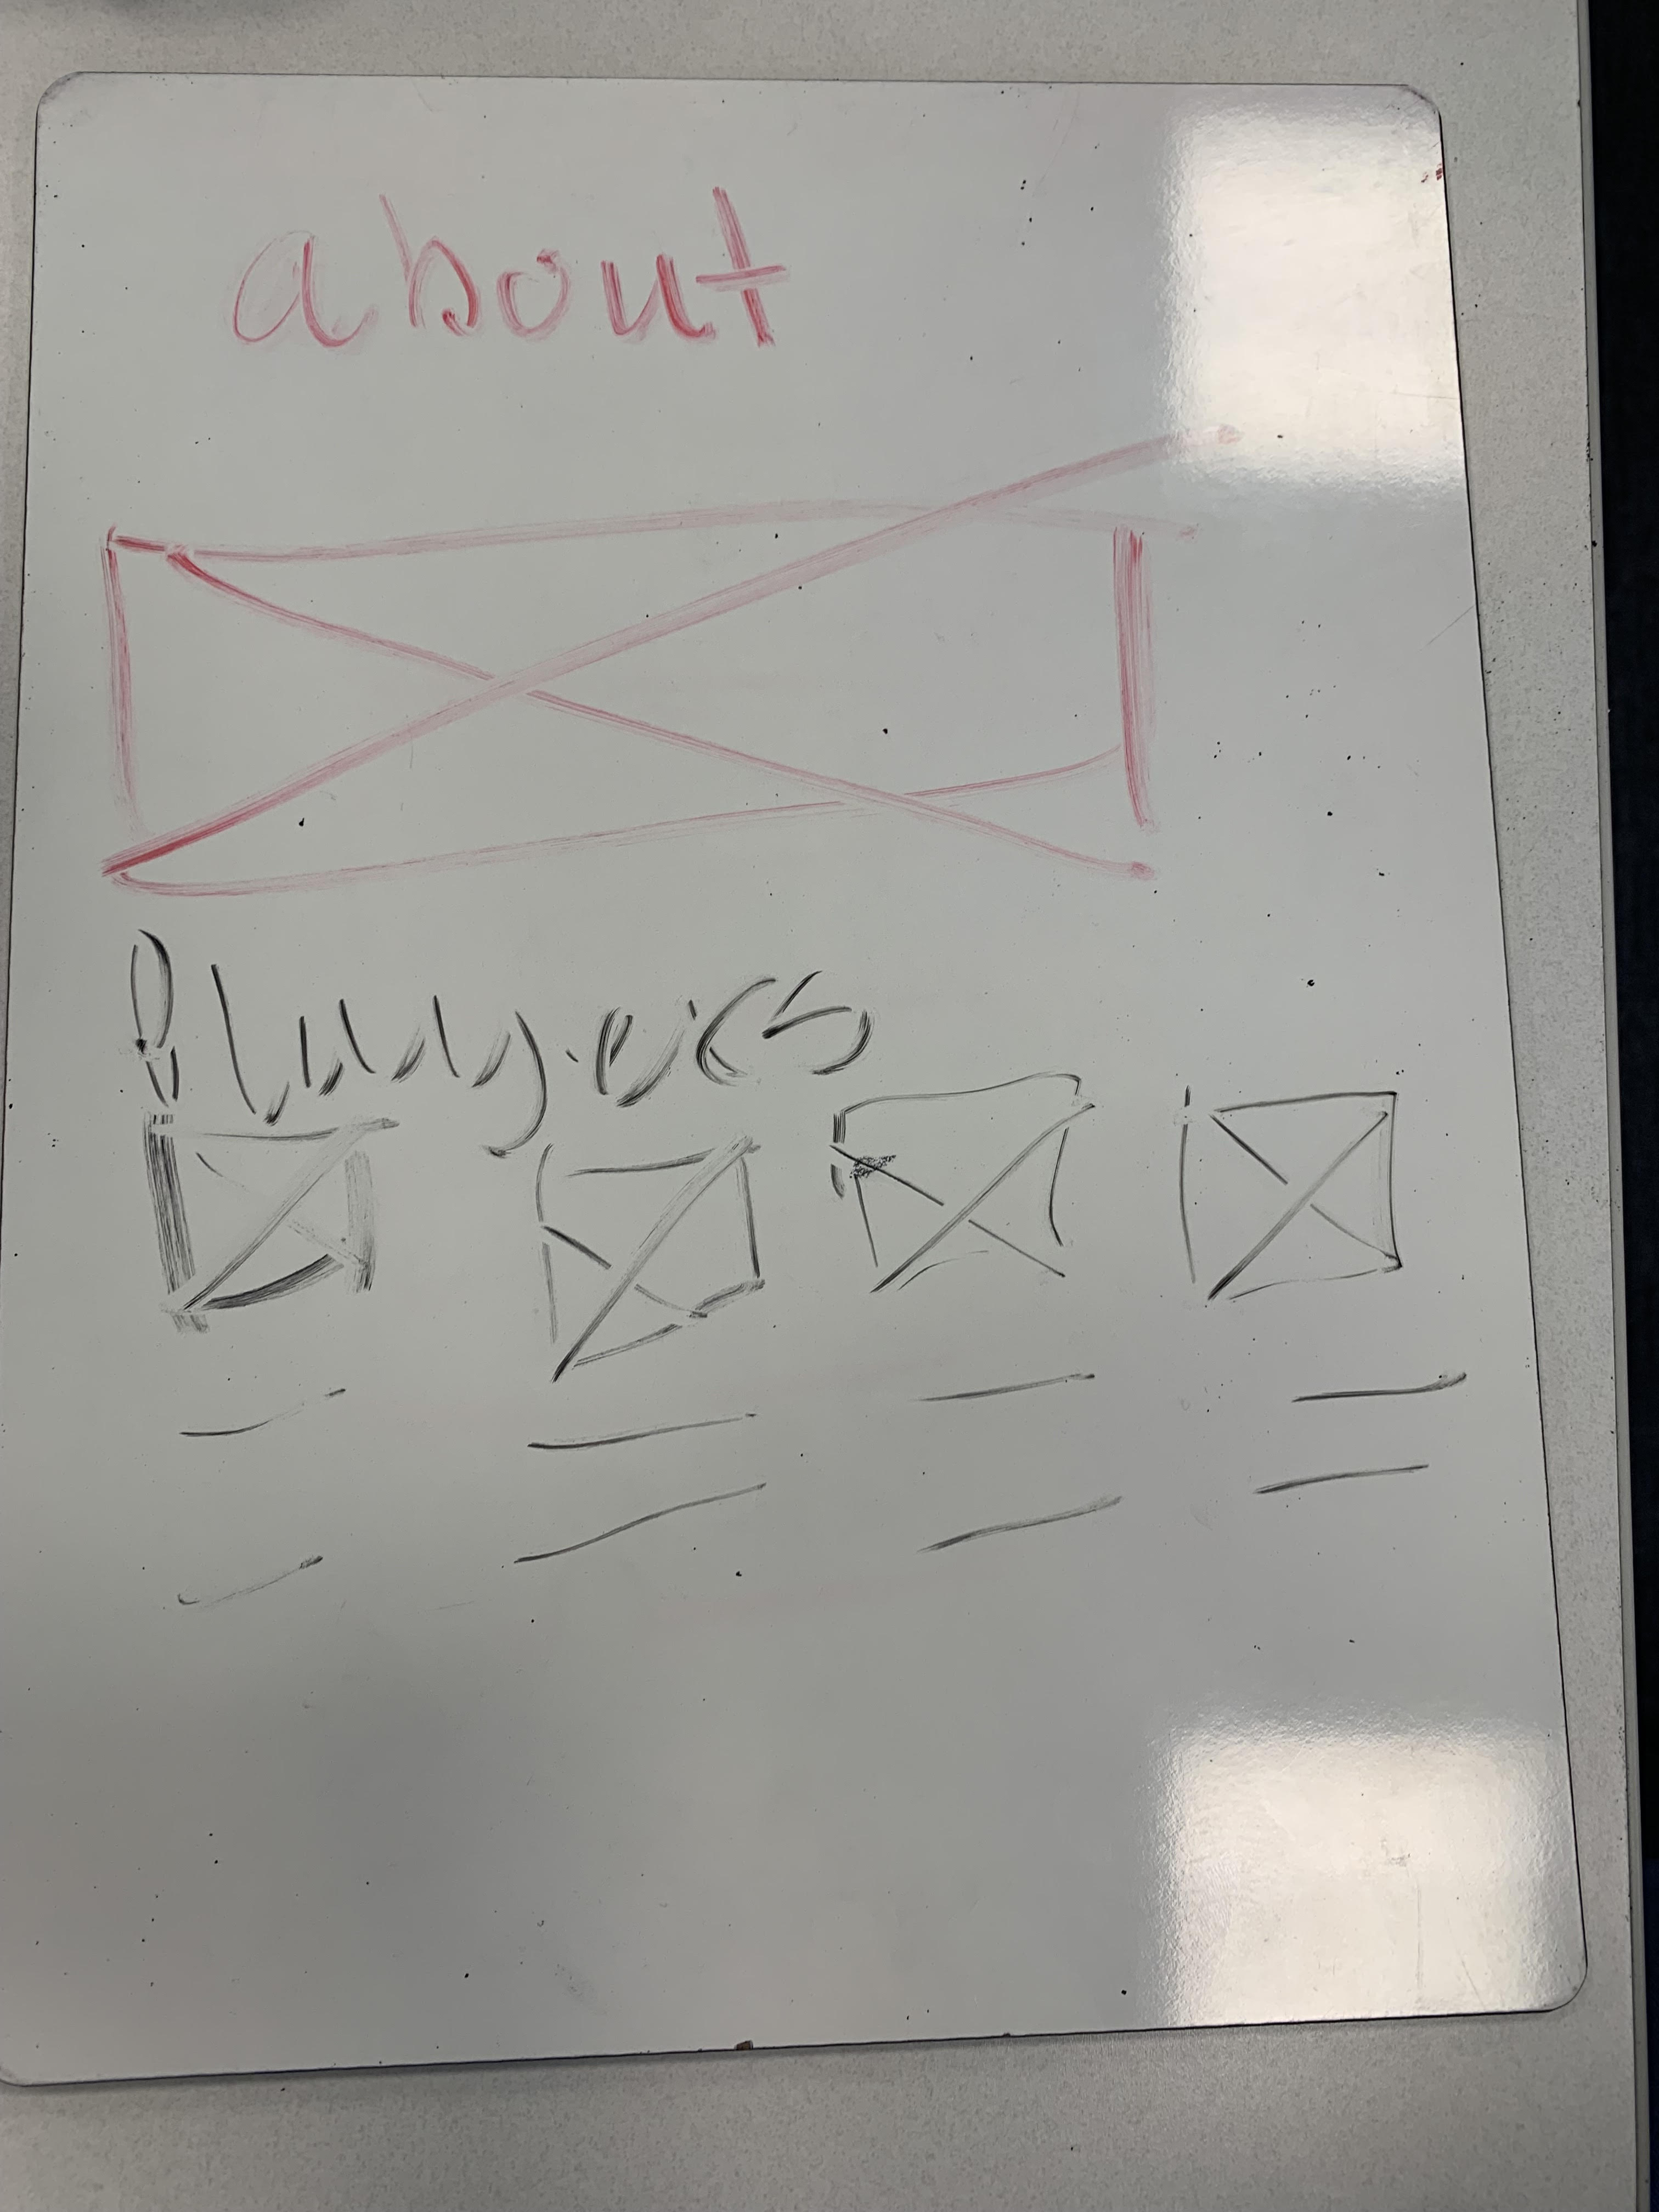 about
Players